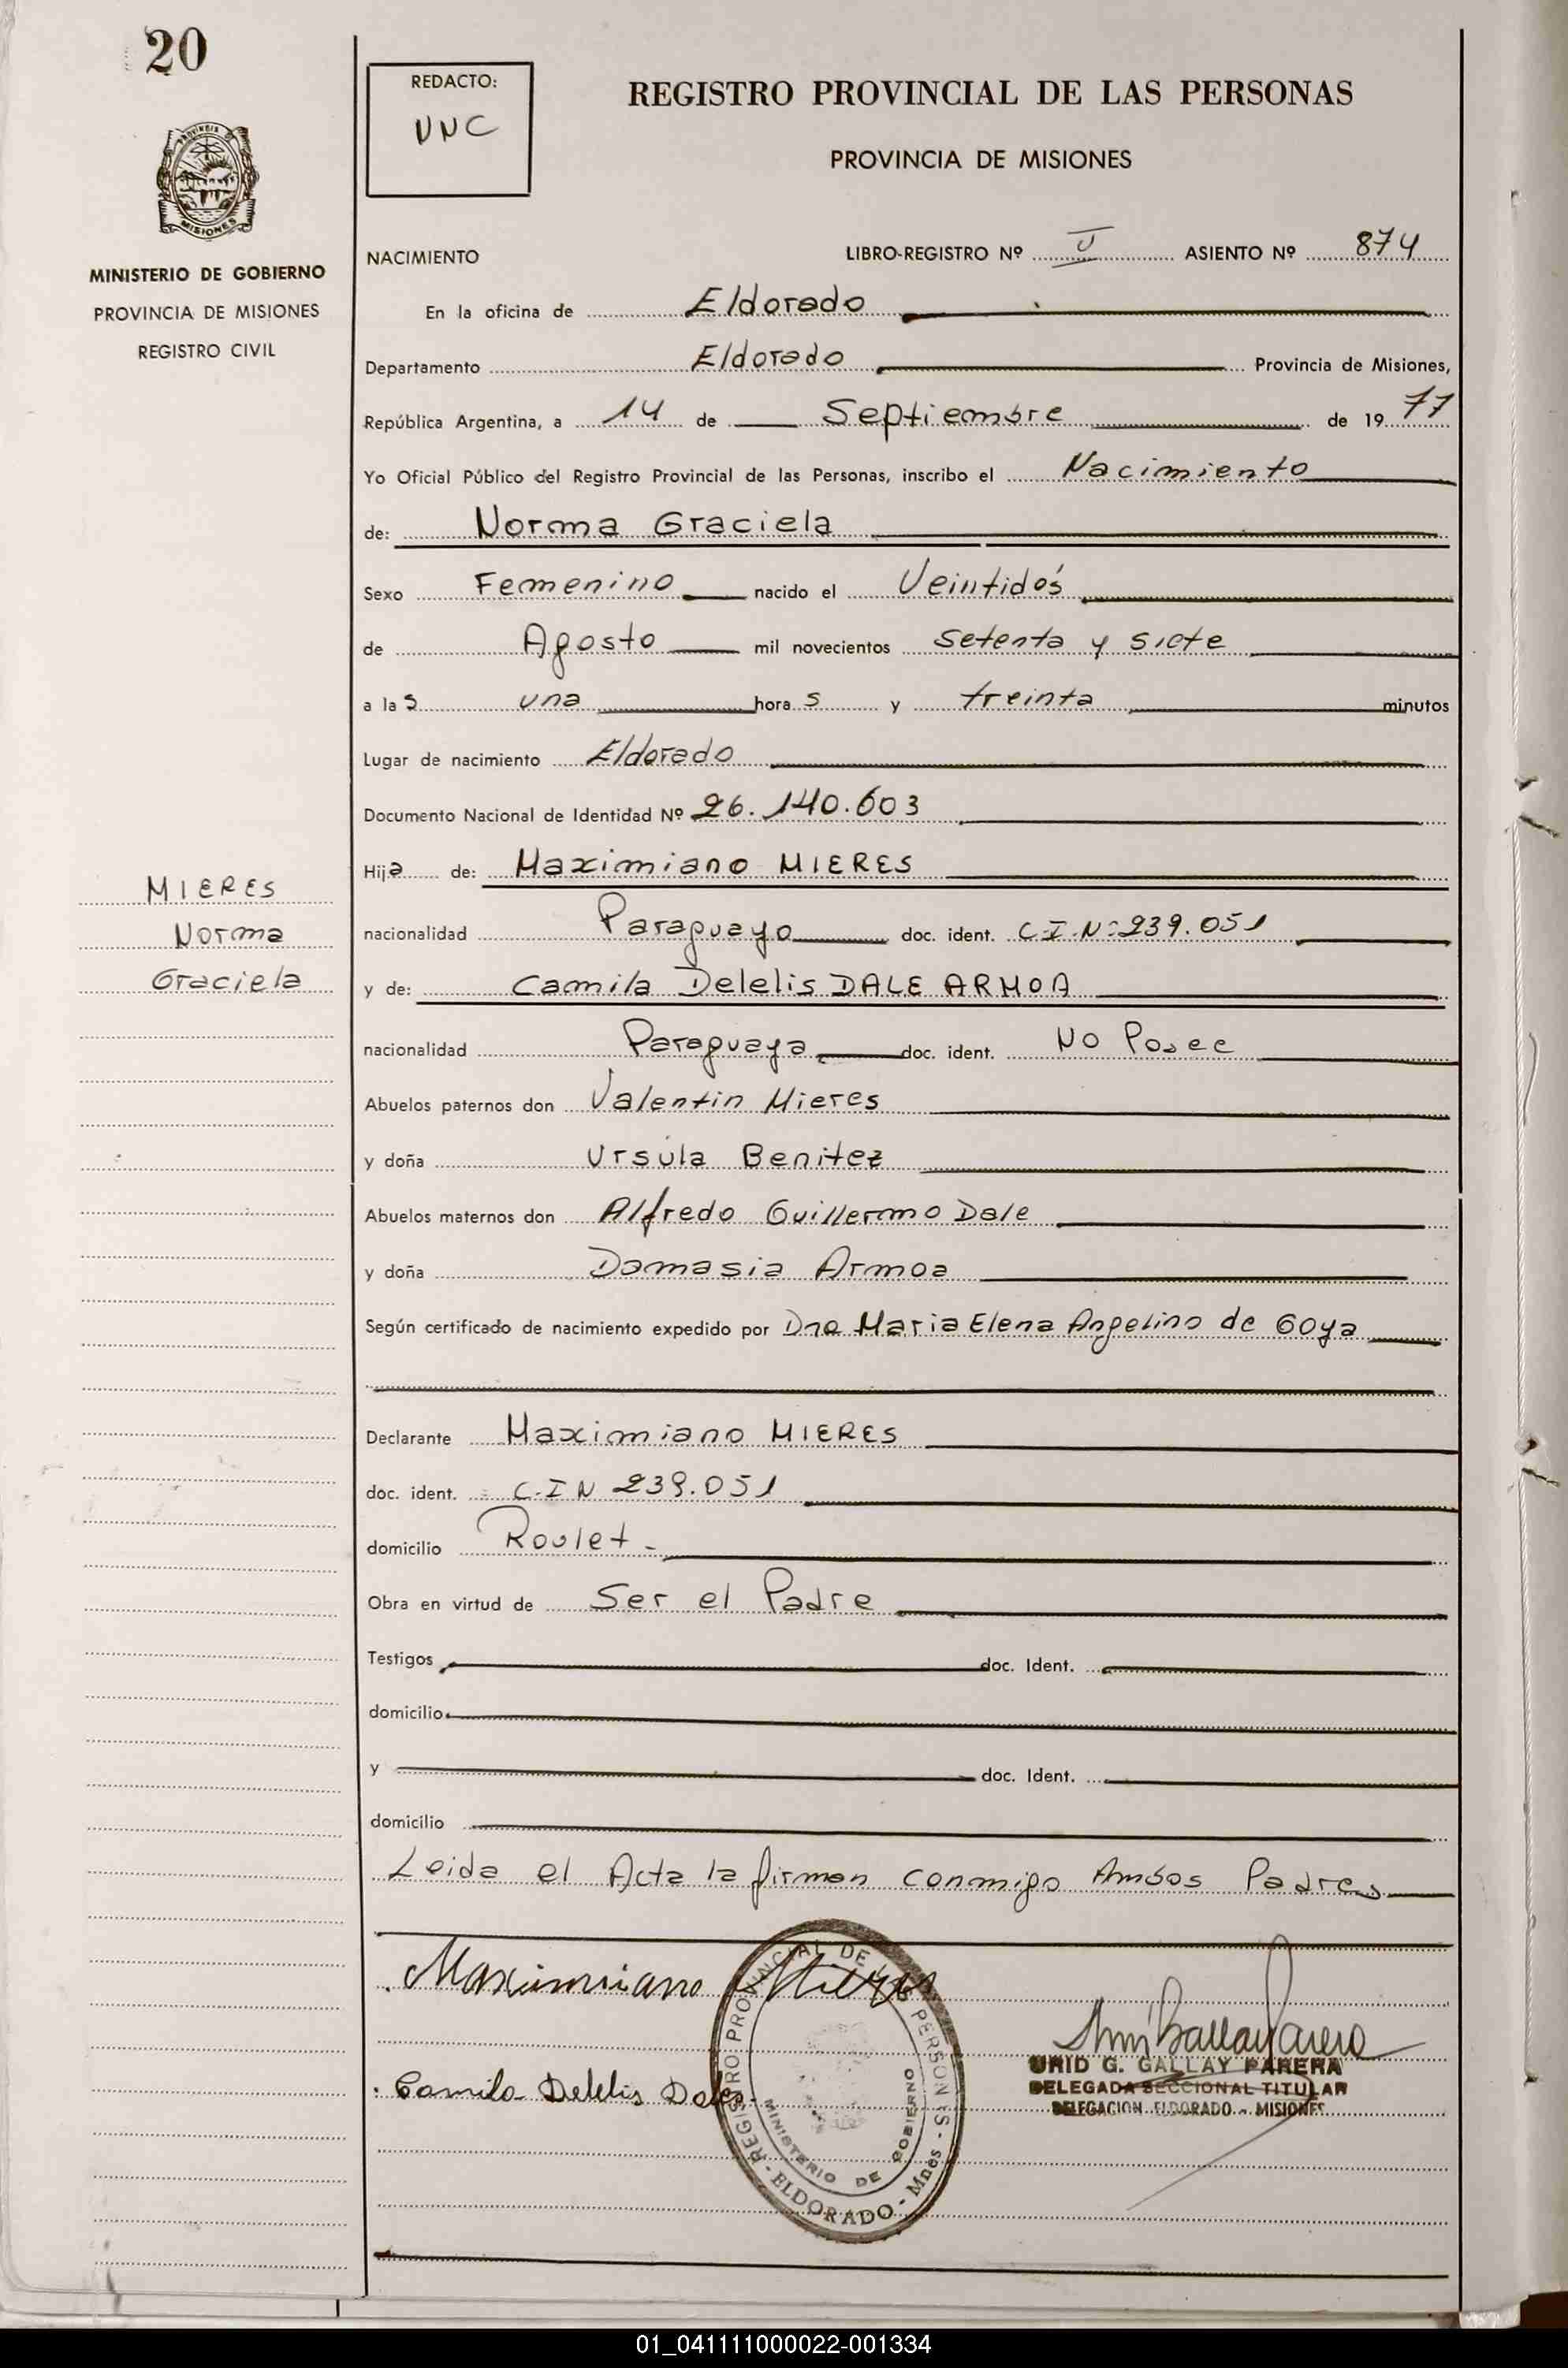 20
REDACTO:
VNC
REGISTRO PROVINCIAL DE LAS PERSONAS
PROVINCIA DE MISIONES
PROVINCIA DE
MISIONES
MINISTERIO DE GOBIERNO
PROVINCIA DE MISIONES
REGISTRO CIVIL
NACIMIENTO LIBRO-REGISTRO Nº ASIENTO Nº 874
En la oficina de Eldorado
Departamento Eldorado Provincia de Misiones,
República Argentina, a 14 de Septiembre de 1977
Yo Oficial Público del Registro Provincial de las Personas, inscribo el Nacimiento
de: Norma Graciela
Sexo Femenino nacido el Veintidós
de Agosto mil novecientos Setenta y siete
a las una horas y treinta minutos
Lugar de nacimiento Eldorado
Documento Nacional de Identidad Nº 26.140.603
Hija de: Maximiano MIERES
MIERES
Norma
Graciela
nacionalidad Paraguayo doc. ident. C.I.Nº 239.051
y de: Camila Delelis DALE ARMOA
nacionalidad Paraguaya doc. ident. No Posee
Abuelos paternos don Valentin Mieres
y doña Ursula Benitez
Abuelos maternos don Alfredo Guillermo Dale
y doña Damasia Armoa
Según certificado de nacimiento expedido por Dra Maria Elena Angelino de Goya
Declarante Maximiano MIERES
doc. ident. C.I N 239.051
domicilio Roulet -
Obra en virtud de Ser el Padre
Testigos doc. Ident.
domicilio
y doc. Ident.
domicilio
Leida el Acta la firman conmigo Ambos Padres
Maximiano Mieres
Camila Delelis Dale
REGISTRO PROVINCIAL DE LAS PERSONAS - Mnes - ELDORADO -
MINISTERIO DE GOBIERNO
URID G. GALLAY PARERA
DELEGADA SECCIONAL TITULAR
DELEGACION ELDORADO - MISIONES
01_041111000022-001334